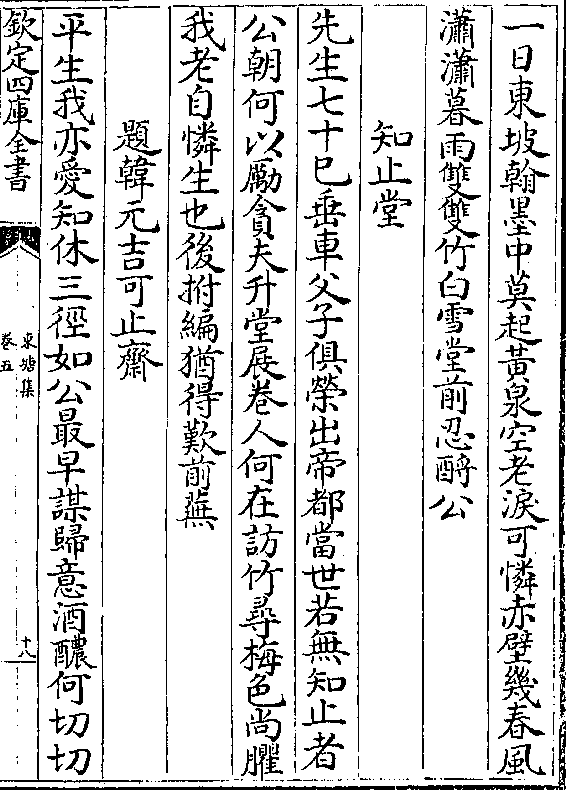 一日東坡翰墨中莫起黃泉空老淚可憐赤壁幾春風
瀟瀟暮雨雙雙竹白雪堂前忍酹公
知止堂
先生七十已垂車父子俱榮出帝都當世若無知止者
公朝何以勵貪夫升堂展卷人何在訪竹尋梅色尚臞
我老自憐生也後拊編猶得歎前蕪
題韓元吉可止齋
平生我亦愛知休三徑如公最早謀歸意酒醲何切切
欽定四庫全書
東塘集
卷五
十八